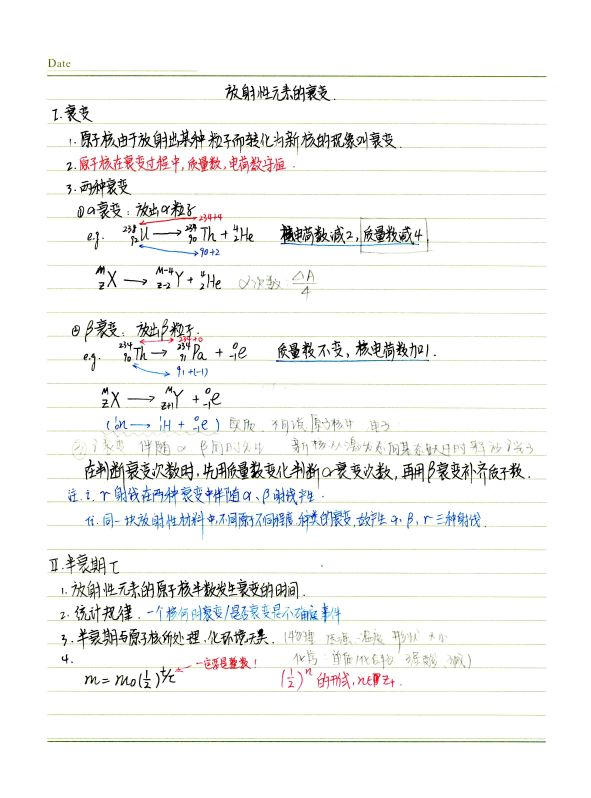 Date
放射性元素的衰变.
I.衰变
1. 原子核由于放射出某种粒子而转化为新核的现象叫衰变.
2. 原子核在衰变过程中,质量数,电荷数守恒.
3. 两种衰变
①α衰变: 放出α粒子
234+4
e.g. ²³⁸₉₂U → ²³⁴₉₀Th + ⁴₂He 核电荷数减2, 质量数减4.
90+2
ᴹ_Z X → ᴹ⁻⁴_Z-2 Y + ⁴₂He α次数: ΔA/4
②β衰变: 放出β粒子.
234+0
e.g. ²³⁴₉₀Th → ²³⁴₉₁Pa + ⁰₋₁e 质量数不变, 核电荷数加1.
91+(-1)
ᴹ_Z X → ᴹ_Z+1 Y + ⁰₋₁e
(¹₀n → ¹₁H + ⁰₋₁e) 实质
衰变 伴随α β同时发生 新核从激发态向基态跃迁时释放
在判断衰变次数时, 先用质量数变化判断α衰变次数, 再用β衰变补齐质子数.
注: i. γ射线在两种衰变中伴随α、β射线产生.
ii. 同一块放射性材料中,不同原子不同程度、种类的衰变, 故产生α, β, γ三种射线.
II.半衰期τ
1. 放射性元素的原子核半数发生衰变的时间.
2. 统计规律. 一个核何时衰变/是否衰变是不确定事件
3. 半衰期与原子核所处理、化环境无关. (物理 压强 温度 形状 大小
化学: 单质/化合物
4. 一定要是整数!
m = m₀(½)^(t/τ) (½)ⁿ的形式, n∈Z₊.